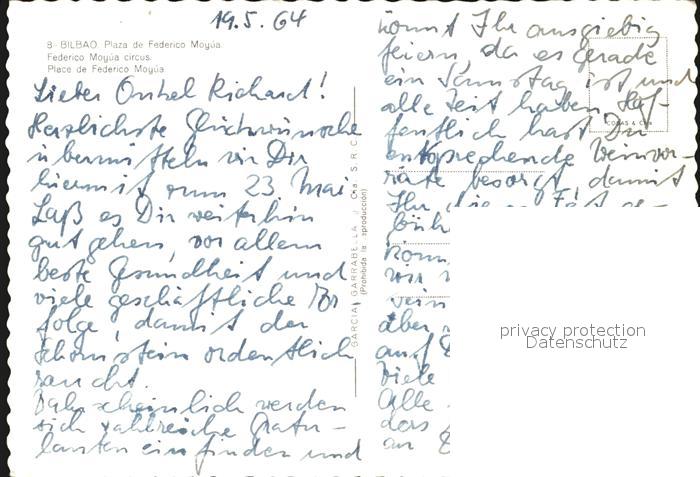 19.5.64
8- BILBAO. Plaza de Federico Moyúa.
Federico Moyúa circus.
Place de Federico Moyúa
Lieber Onkel Richard!
Herzlichste Glückwünsche
übermitteln wir Dir
hiermit zum 23. Mai.
Laß es Dir weiterhin
gut gehen, vor allem
beste Gesundheit und
viele geschäftliche Er-
folge, damit der
Schornstein ordentlich
raucht.
Wahrscheinlich werden
sich zahlreiche Gratu-
lanten einfinden und
GARCIA GARRABELLA y Cia. S. R. C.
(Prohibida la reproducción)
könnt Ihr ausgiebig
feiern, da es gerade
ein Samstag ist und
alle Zeit haben. Hof-
fentlich hast Du
entsprechende Weinvor-
räte besorgt, damit
Ihr die Fest ge-
büh
könn
wir
vein
aber
auf
Viele
Alle
ders
an
privacy protection
Datenschutz